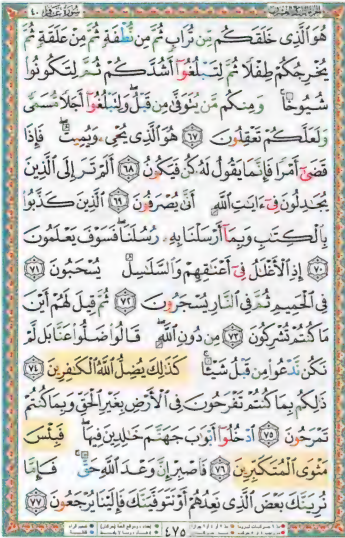 سورة غافر ٤٠
هُوَ ٱلَّذِى خَلَقَكُم مِّن تُرَابٍ ثُمَّ مِن نُّطْفَةٍ ثُمَّ مِنْ عَلَقَةٍ ثُمَّ
يُخْرِجُكُمْ طِفْلًا ثُمَّ لِتَبْلُغُوٓا۟ أَشُدَّكُمْ ثُمَّ لِتَكُونُوا۟
شُيُوخًا ۚ وَمِنكُم مَّن يُتَوَفَّىٰ مِن قَبْلُ ۖ وَلِتَبْلُغُوٓا۟ أَجَلًا مُّسَمًّى
وَلَعَلَّكُمْ تَعْقِلُونَ ٦٧ هُوَ ٱلَّذِى يُحْىِۦ وَيُمِيتُ ۖ فَإِذَا
قَضَىٰٓ أَمْرًا فَإِنَّمَا يَقُولُ لَهُۥ كُن فَيَكُونُ ٦٨ أَلَمْ تَرَ إِلَى ٱلَّذِينَ
يُجَـٰدِلُونَ فِىٓ ءَايَـٰتِ ٱللَّهِ أَنَّىٰ يُصْرَفُونَ ٦٩ ٱلَّذِينَ كَذَّبُوا۟
بِٱلْكِتَـٰبِ وَبِمَآ أَرْسَلْنَا بِهِۦ رُسُلَنَا ۖ فَسَوْفَ يَعْلَمُونَ
٧٠ إِذِ ٱلْأَغْلَـٰلُ فِىٓ أَعْنَـٰقِهِمْ وَٱلسَّلَـٰسِلُ يُسْحَبُونَ ٧١
فِى ٱلْحَمِيمِ ثُمَّ فِى ٱلنَّارِ يُسْجَرُونَ ٧٢ ثُمَّ قِيلَ لَهُمْ أَيْنَ
مَا كُنتُمْ تُشْرِكُونَ ٧٣ مِن دُونِ ٱللَّهِ ۖ قَالُوا۟ ضَلُّوا۟ عَنَّا بَل لَّمْ
نَكُن نَّدْعُوا۟ مِن قَبْلُ شَيْـًٔا ۚ كَذَٰلِكَ يُضِلُّ ٱللَّهُ ٱلْكَـٰفِرِينَ ٧٤
ذَٰلِكُم بِمَا كُنتُمْ تَفْرَحُونَ فِى ٱلْأَرْضِ بِغَيْرِ ٱلْحَقِّ وَبِمَا كُنتُمْ
تَمْرَحُونَ ٧٥ ٱدْخُلُوٓا۟ أَبْوَٰبَ جَهَنَّمَ خَـٰلِدِينَ فِيهَا ۖ فَبِئْسَ
مَثْوَى ٱلْمُتَكَبِّرِينَ ٧٦ فَٱصْبِرْ إِنَّ وَعْدَ ٱللَّهِ حَقٌّ ۚ فَإِمَّا
نُرِيَنَّكَ بَعْضَ ٱلَّذِى نَعِدُهُمْ أَوْ نَتَوَفَّيَنَّكَ فَإِلَيْنَا يُرْجَعُونَ ٧٧
٤٧٥